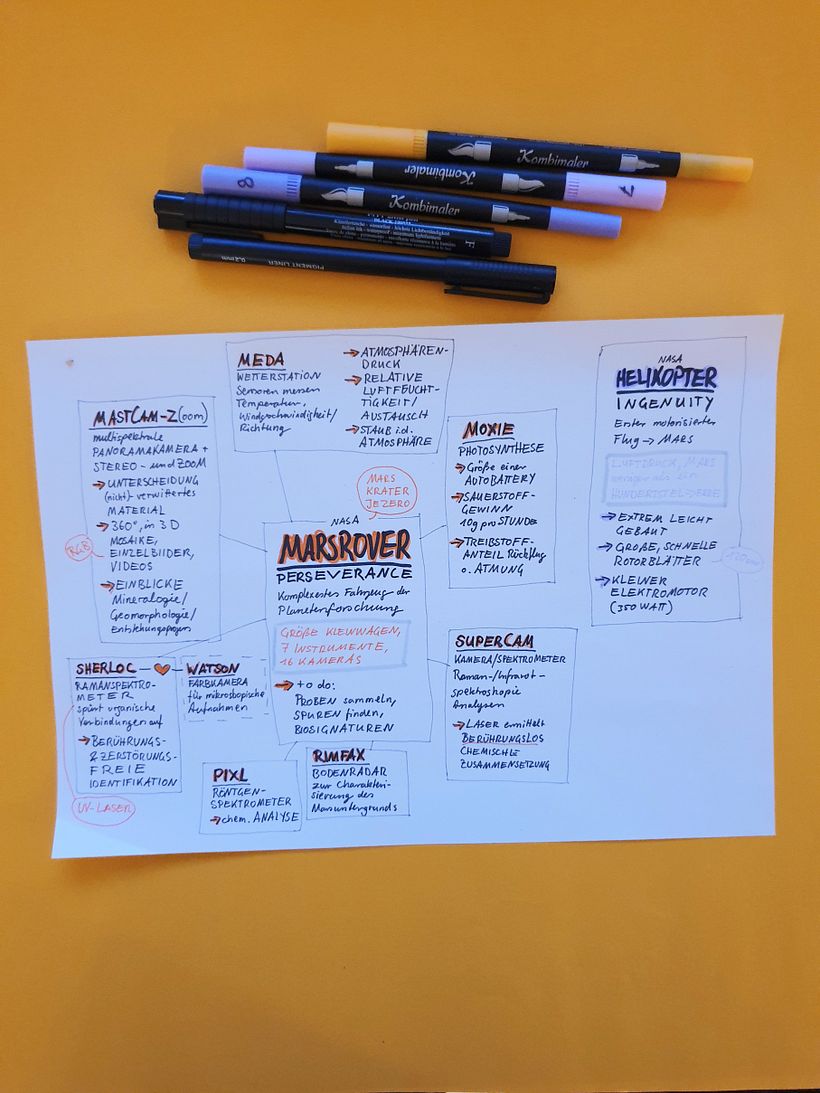 Kombimaler
Kombimaler
7
8
Kombimaler
F
PIGMENT LINER
0.2mm
MEDA
WETTERSTATION
Sensoren messen
Temperatur,
Windgeschwindigkeit/
Richtung
→ ATMOSPHÄREN-
DRUCK
→ RELATIVE
LUFTFEUCHT-
TIGKEIT/
AUSTAUSCH
→ STAUB i.d.
ATMOSPHÄRE
MASTCAM-Z(oom)
multispektrale
PANORAMAKAMERA +
STEREO- und ZOOM
→ UNTERSCHEIDUNG
(nicht)-verwittertes
MATERIAL
→ 360°, in 3D
MOSAIKE,
EINZELBILDER,
VIDEOS
→ EINBLICKE
Mineralogie/
Geomorphologie/
RGB
MOXIE
PHOTOSYNTHESE
→ Größe einer
AUTOBATTERY
→ SAUERSTOFF-
GEWINN
10g pro STUNDE
→ TREIBSTOFF-
ANTEIL Rückflug
o. ATMUNG
MARS
KRATER
JEZERO
NASA
MARSROVER
PERSEVERANCE
Komplexestes Fahrzeug der
Planetenforschung
GRÖßE KLEINWAGEN,
7 INSTRUMENTE,
16 KAMERAS
→ to do:
PROBEN sammeln,
SPUREN finden,
BIOSIGNATUREN
NASA
HELIKOPTER
INGENUITY
Erster motorisierter
Flug → MARS
LUFTDRUCK, MARS
weniger als ein
HUNDERTSTEL-ERDE
→ EXTREM LEICHT
GEBAUT
→ GROßE, SCHNELLE
ROTORBLÄTTER
120cm
→ KLEINER
ELEKTROMOTOR
(350 WATT)
SHERLOC
RAMANSPEKTRO-
METER
spürt organische
Verbindungen auf
→ BERÜHRUNGS-
& ZERSTÖRUNGS-
FREIE
IDENTIFIKATION
UV-LASER
WATSON
FARBKAMERA
für mikroskopische
Aufnahmen
SUPERCAM
KAMERA/SPEKTROMETER
Raman-/Infrarot-
spektroskopie
Analysen
→ LASER ermittelt
BERÜHRUNGSLOS
CHEMISCHE
ZUSAMMENSETZUNG
PIXL
RÖNTGEN-
SPEKTROMETER
→ chem. ANALYSE
RIMFAX
BODENRADAR
zur Charakteri-
sierung des
Marsuntergrunds